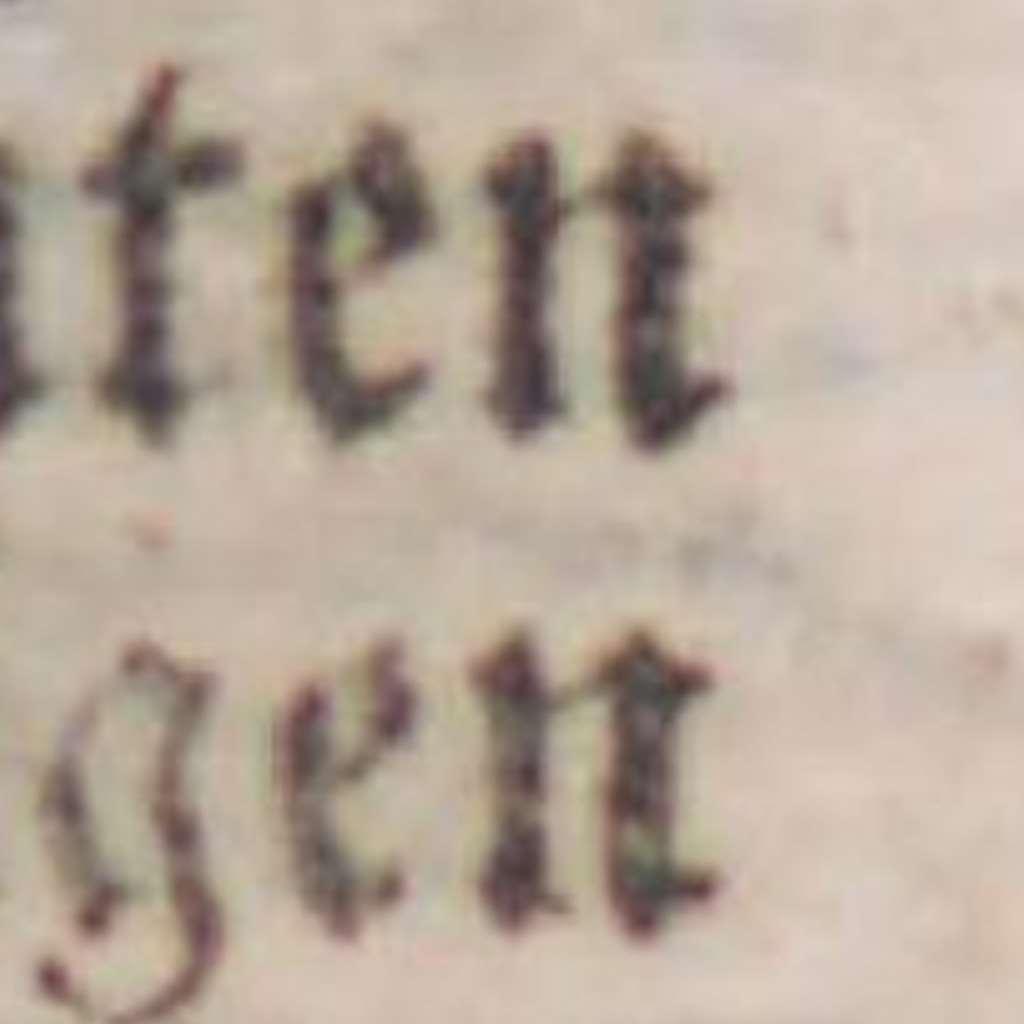 ten
gen